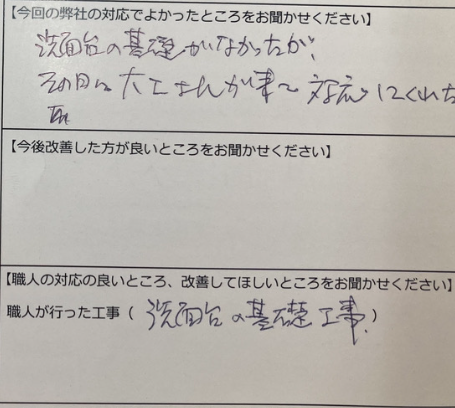 【今回の弊社の対応でよかったところをお聞かせください】
洗面台の基礎がなかったが、
その日に大工さんが来て対応してくれた
【今後改善した方が良いところをお聞かせください】
【職人の対応の良いところ、改善してほしいところをお聞かせください】
職人が行った工事(洗面台の基礎工事.)